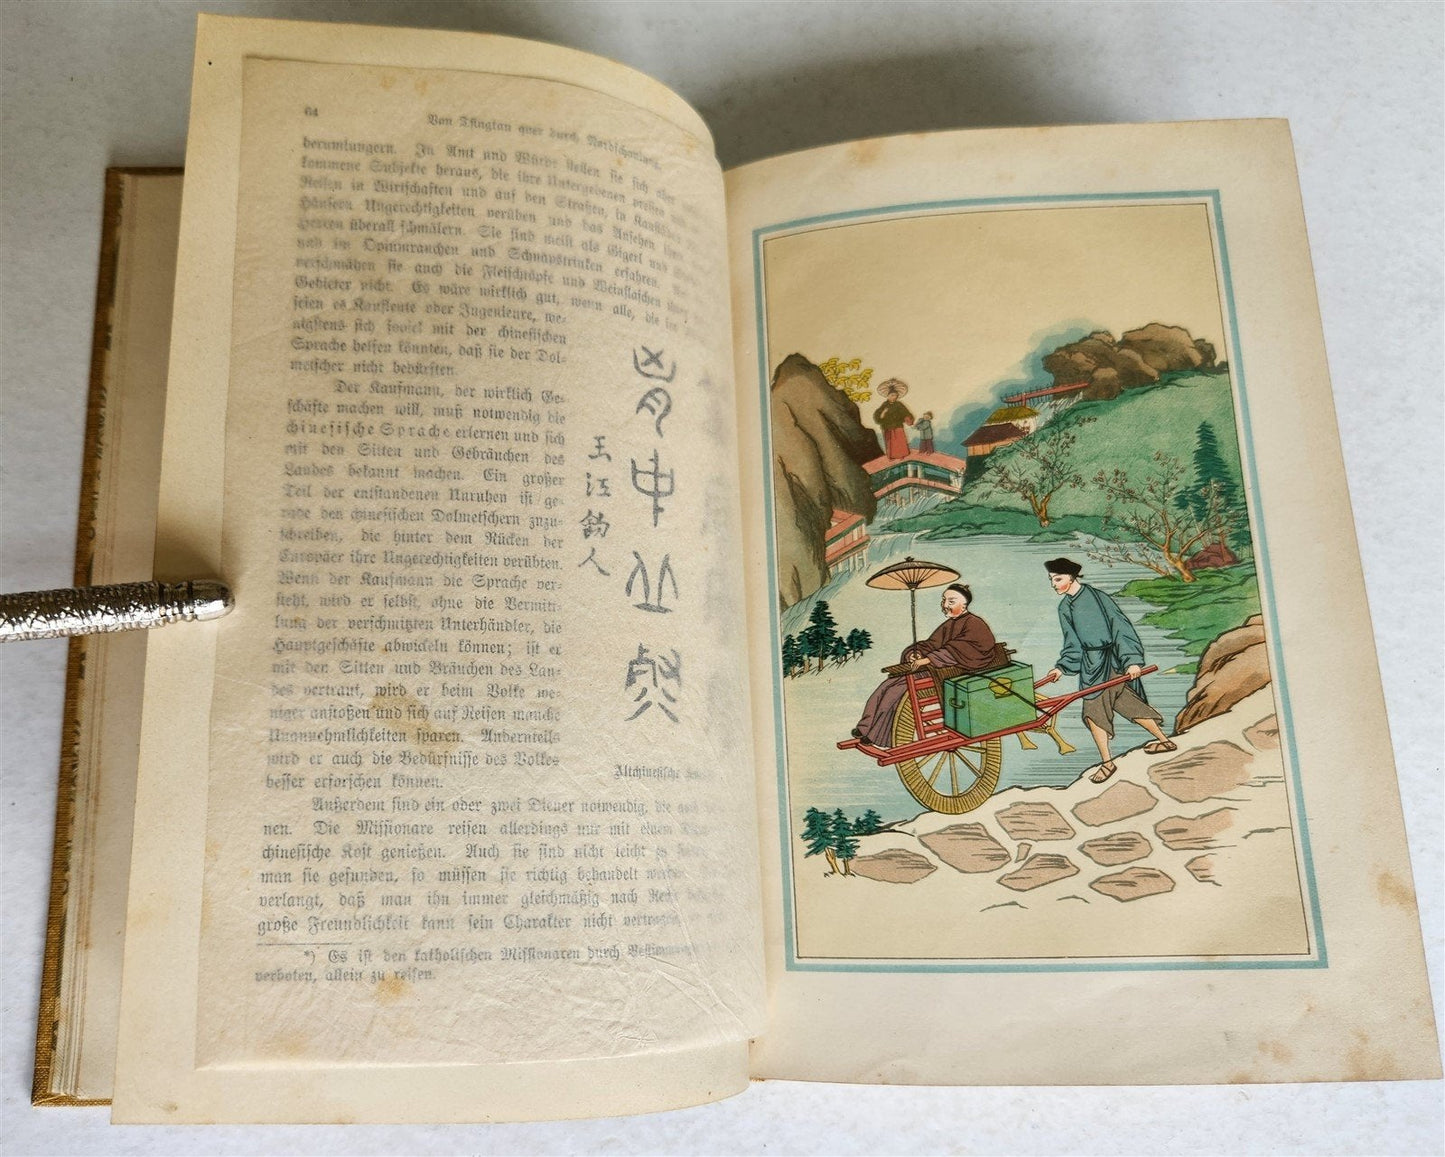 64 Von Tsingtau quer durch Nordschantung.
herumlungern. In Amt und Würde stellen sie sich aber
kommene Subjekte heraus, die ihre Untergebenen pressen
Reisen in Wirtschaften und auf den Straßen, in Kaufläden
Häusern Ungerechtigkeiten verüben und das Ansehen ihrer
Herren überall schmälern. Sie sind meist als Gigerl und
und im Opiumrauchen und Schnapstrinken erfahren.
verschmähen sie auch die Fleischtöpfe und Weinflaschen
Gebieter nicht. Es wäre wirklich gut, wenn alle, die
seien es Kaufleute oder Ingenieure, we-
nigstens sich soviel mit der chinesischen
Sprache helfen könnten, daß sie der Dol-
metscher nicht bedürften.
Der Kaufmann, der wirklich Ge-
schäfte machen will, muß notwendig die
chinesische Sprache erlernen und sich
mit den Sitten und Gebräuchen des
Landes bekannt machen. Ein großer
Teil der entstandenen Unruhen ist ge-
rade den chinesischen Dolmetschern zuzu-
schreiben, die hinter dem Rücken der
Europäer ihre Ungerechtigkeiten verübten.
Wenn der Kaufmann die Sprache ver-
steht, wird er selbst, ohne die Vermitt-
lung der verschmitzten Unterhändler, die
Hauptgeschäfte abwickeln können; ist er
mit den Sitten und Bräuchen des Lan-
des vertraut, wird er beim Volke we-
niger anstoßen und sich auf Reisen manche
Unannehmlichkeiten sparen. Andernteils
wird er auch die Bedürfnisse des Volkes
besser erforschen können.
王江釣人
Altchinesische
Außerdem sind ein oder zwei Diener notwendig, die
nen. Die Missionare reisen allerdings nur mit einem
chinesische Kost genießen. Auch sie sind nicht leicht zu
man sie gefunden, so müssen sie richtig behandelt
verlangt, daß man ihn immer gleichmäßig nach
große Freundlichkeit kann sein Charakter nicht vertragen
*) Es ist den katholischen Missionaren durch
verboten, allein zu reisen.